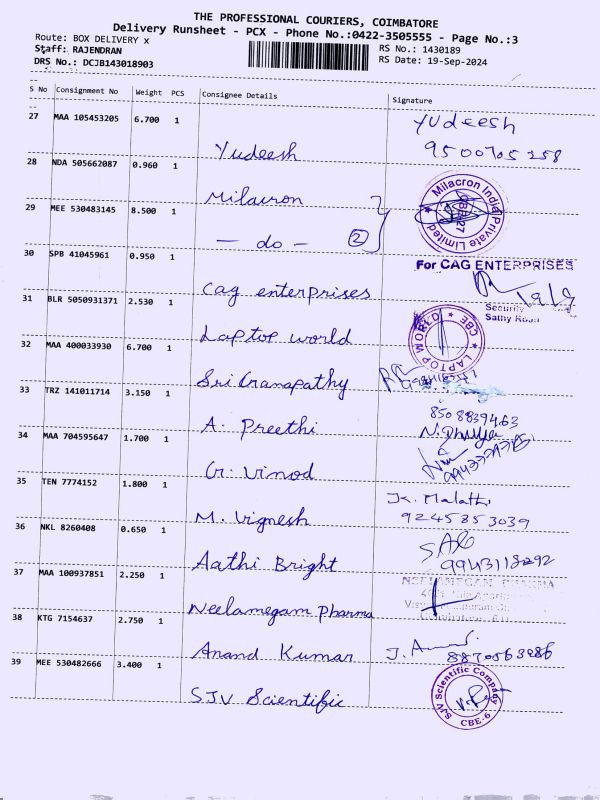 THE PROFESSIONAL COURIERS, COIMBATORE
Delivery Runsheet - PCX - Phone No.:0422-3505555 - Page No.:3
Route: BOX DELIVERY x
Staff: RAJENDRAN
DRS No.: DCJB143018903
RS No.: 1430189
RS Date: 19-Sep-2024
S No Consignment No Weight PCS Consignee Details Signature
27 MAA 105453205 6.700 1 Yudeesh Yudeesh
9500705258
28 NDA 505662087 0.960 1 Milacron
Milacron India Private Limited
29 MEE 530483145 8.500 1 - do - 2
30 SPB 41045961 0.950 1 Cag enterprises
For CAG ENTERPRISES
Security
Sathy Road
31 BLR 5050931371 2.530 1 Laptop world
LAPTOP WORLD CBE
32 MAA 400033930 6.700 1 Sri Ganapathy
33 TRZ 141011714 3.150 1 A. Preethi
8508839463
34 MAA 704595647 1.700 1 G. Vinod
35 TEN 7774152 1.800 1 M. Vignesh
K. Malathi
9245853039
36 NKL 8260408 0.650 1 Aathi Bright
9943118292
37 MAA 100937851 2.250 1 Neelamegam Pharma
38 KTG 7154637 2.750 1 Anand Kumar
39 MEE 530482666 3.400 1 SJV Scientific
SJV Scientific Company
CBE-6